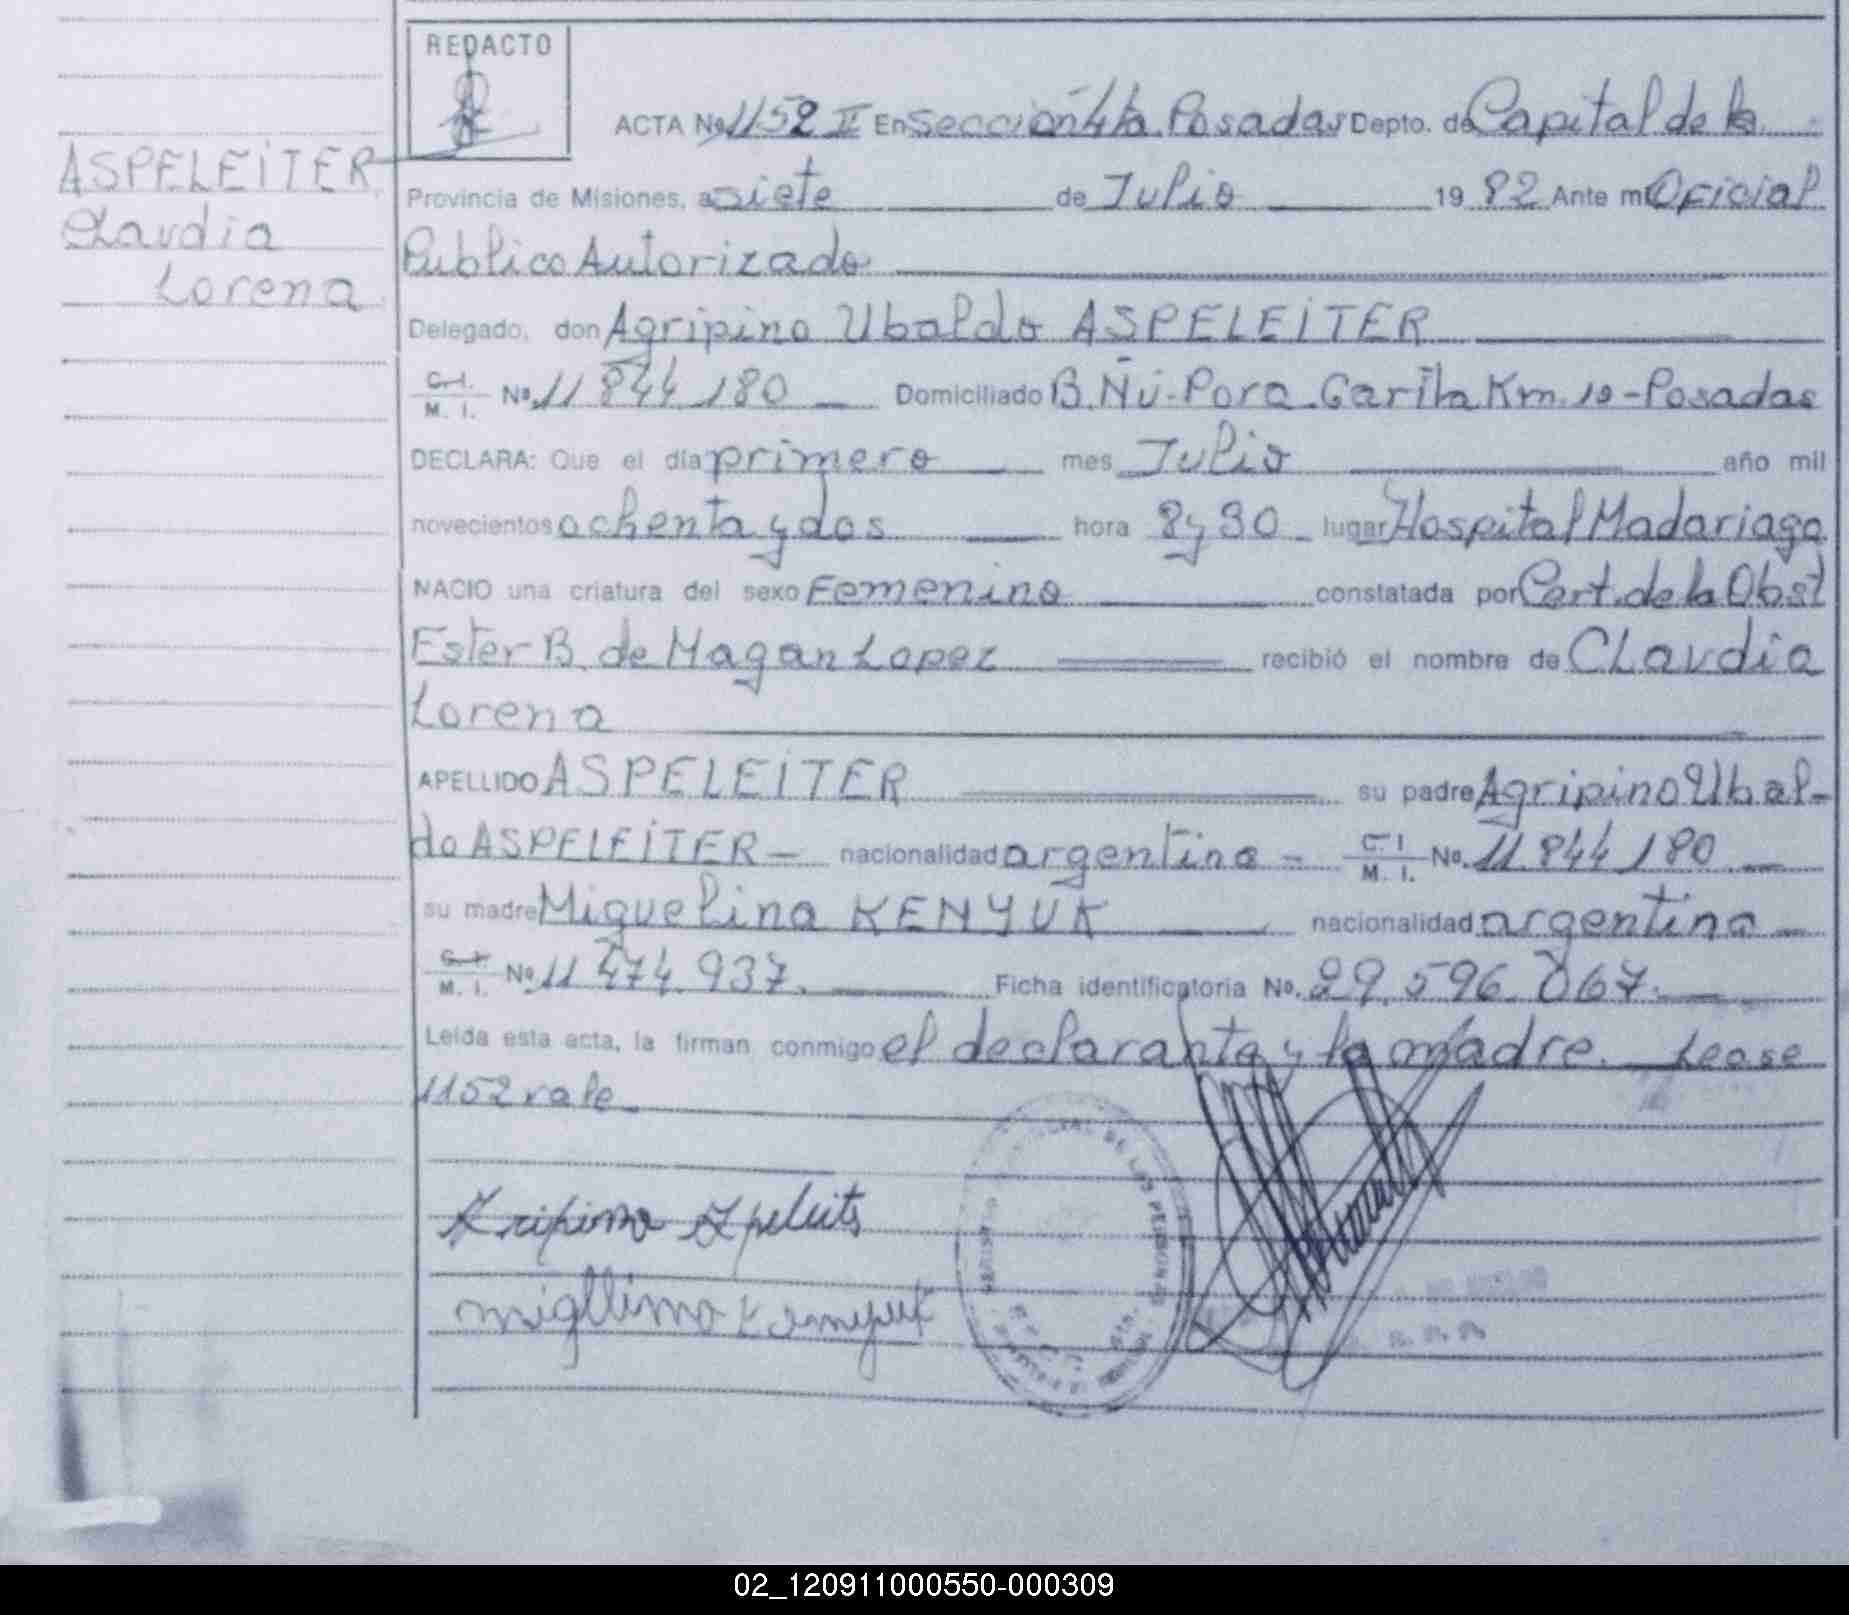 REDACTO
ACTA No. 1152 II En Sección 4ta Posadas Depto. de Capital de la
ASPELEITER
Claudia
Lorena
Provincia de Misiones, a siete de Julio 1982 Ante mi Oficial
Publico Autorizado
Delegado, don Agripino Ubaldo ASPELEITER
C. I. M. I. No. 11 844 180 Domiciliado B. Ñú-Pora Garita Km. 10 - Posadas
DECLARA: Que el día primero mes Julio año mil
novecientos ochenta y dos hora 8 y 30 lugar Hospital Madariaga
NACIO una criatura del sexo Femenino constatada por Cert. de la Obst
Ester B. de Magan Lopez recibió el nombre de CLaudia
Lorena
APELLIDO ASPELEITER su padre Agripino Ubal-
do ASPELEITER - nacionalidad argentina - C. I. M. I. No. 11.844 180
su madre Miguelina KENYUK nacionalidad argentina
C. I. M. I. No. 11 474 937. Ficha identificatoria No. 29.596.067.
Leída esta acta, la firman conmigo el declarante y la madre. Lease
1152 vale
migllima Kennyuk
02_120911000550-000309